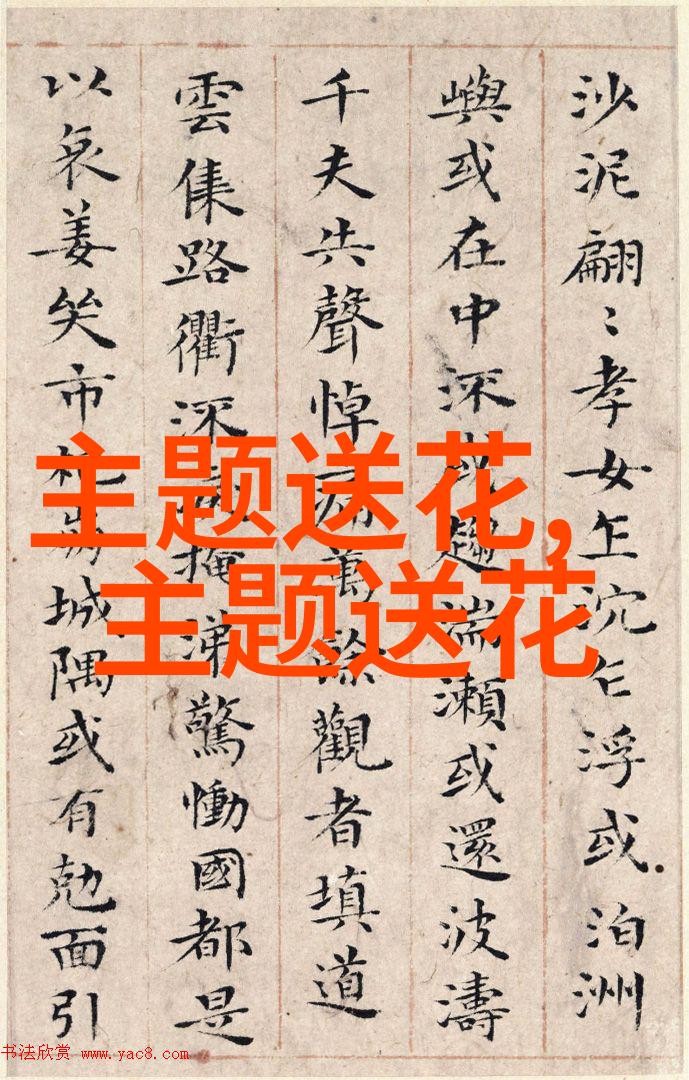 沙泥翩〻孝女乍沉乍浮或泊洲
嶼或在中深或趨湍瀨或還波濤
千夫失聲悼痛萬餘觀者填道
雲集路衢流淚掩涕驚慟國都是
以哀姜哭市杞崩城隅或有剋面引
主题送花,
主题送花
书法欣赏 www.yac8.com